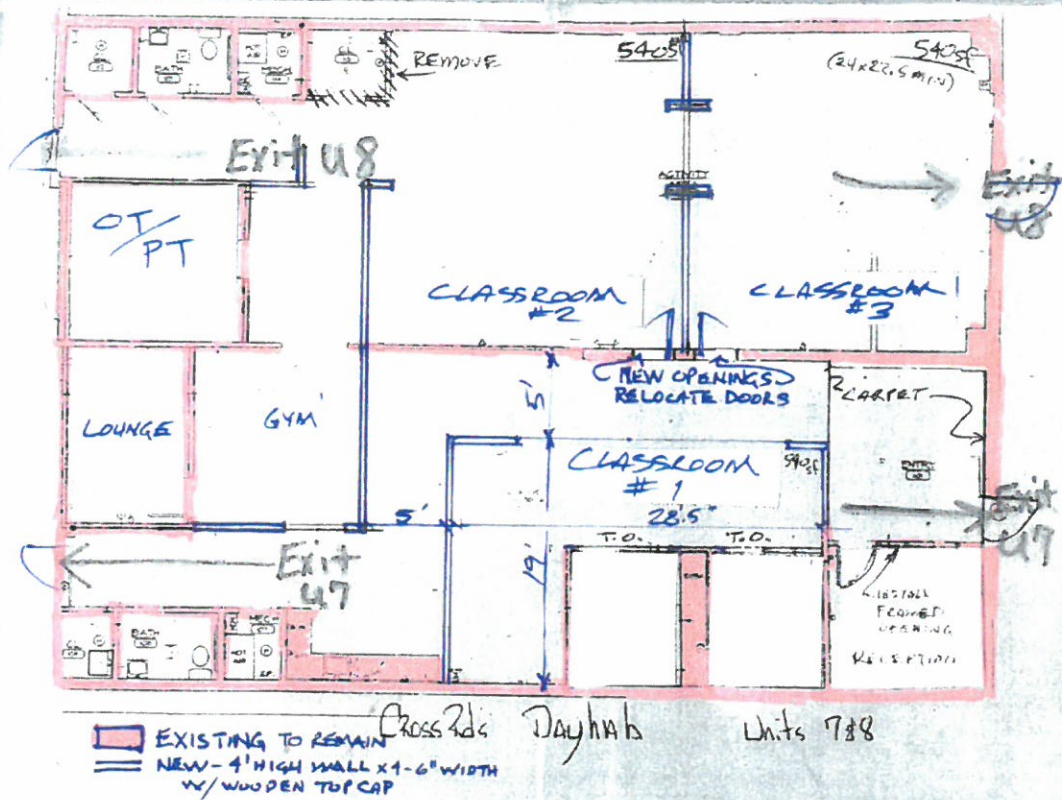 REMOVE
540sf
540sf
(24x22.5 MIN)
Exit U8
ACTIVITY
Exit
U8
OT/
PT
CLASSROOM
#2
CLASSROOM
#3
NEW OPENINGS
RELOCATE DOORS
5'
CARPET
LOUNGE
GYM
CLASSROOM
#1
540sf
ENTRY
28.5"
5'
Exit
U7
T.O.
T.O.
Exit
U7
19'
INSTALL
FRAMED
OPENING
RECEPTION
BATH
Cross Rds Dayhab Units 7&8
EXISTING TO REMAIN
NEW - 4' HIGH WALL x 4-6" WIDTH
W/ WOODEN TOP CAP